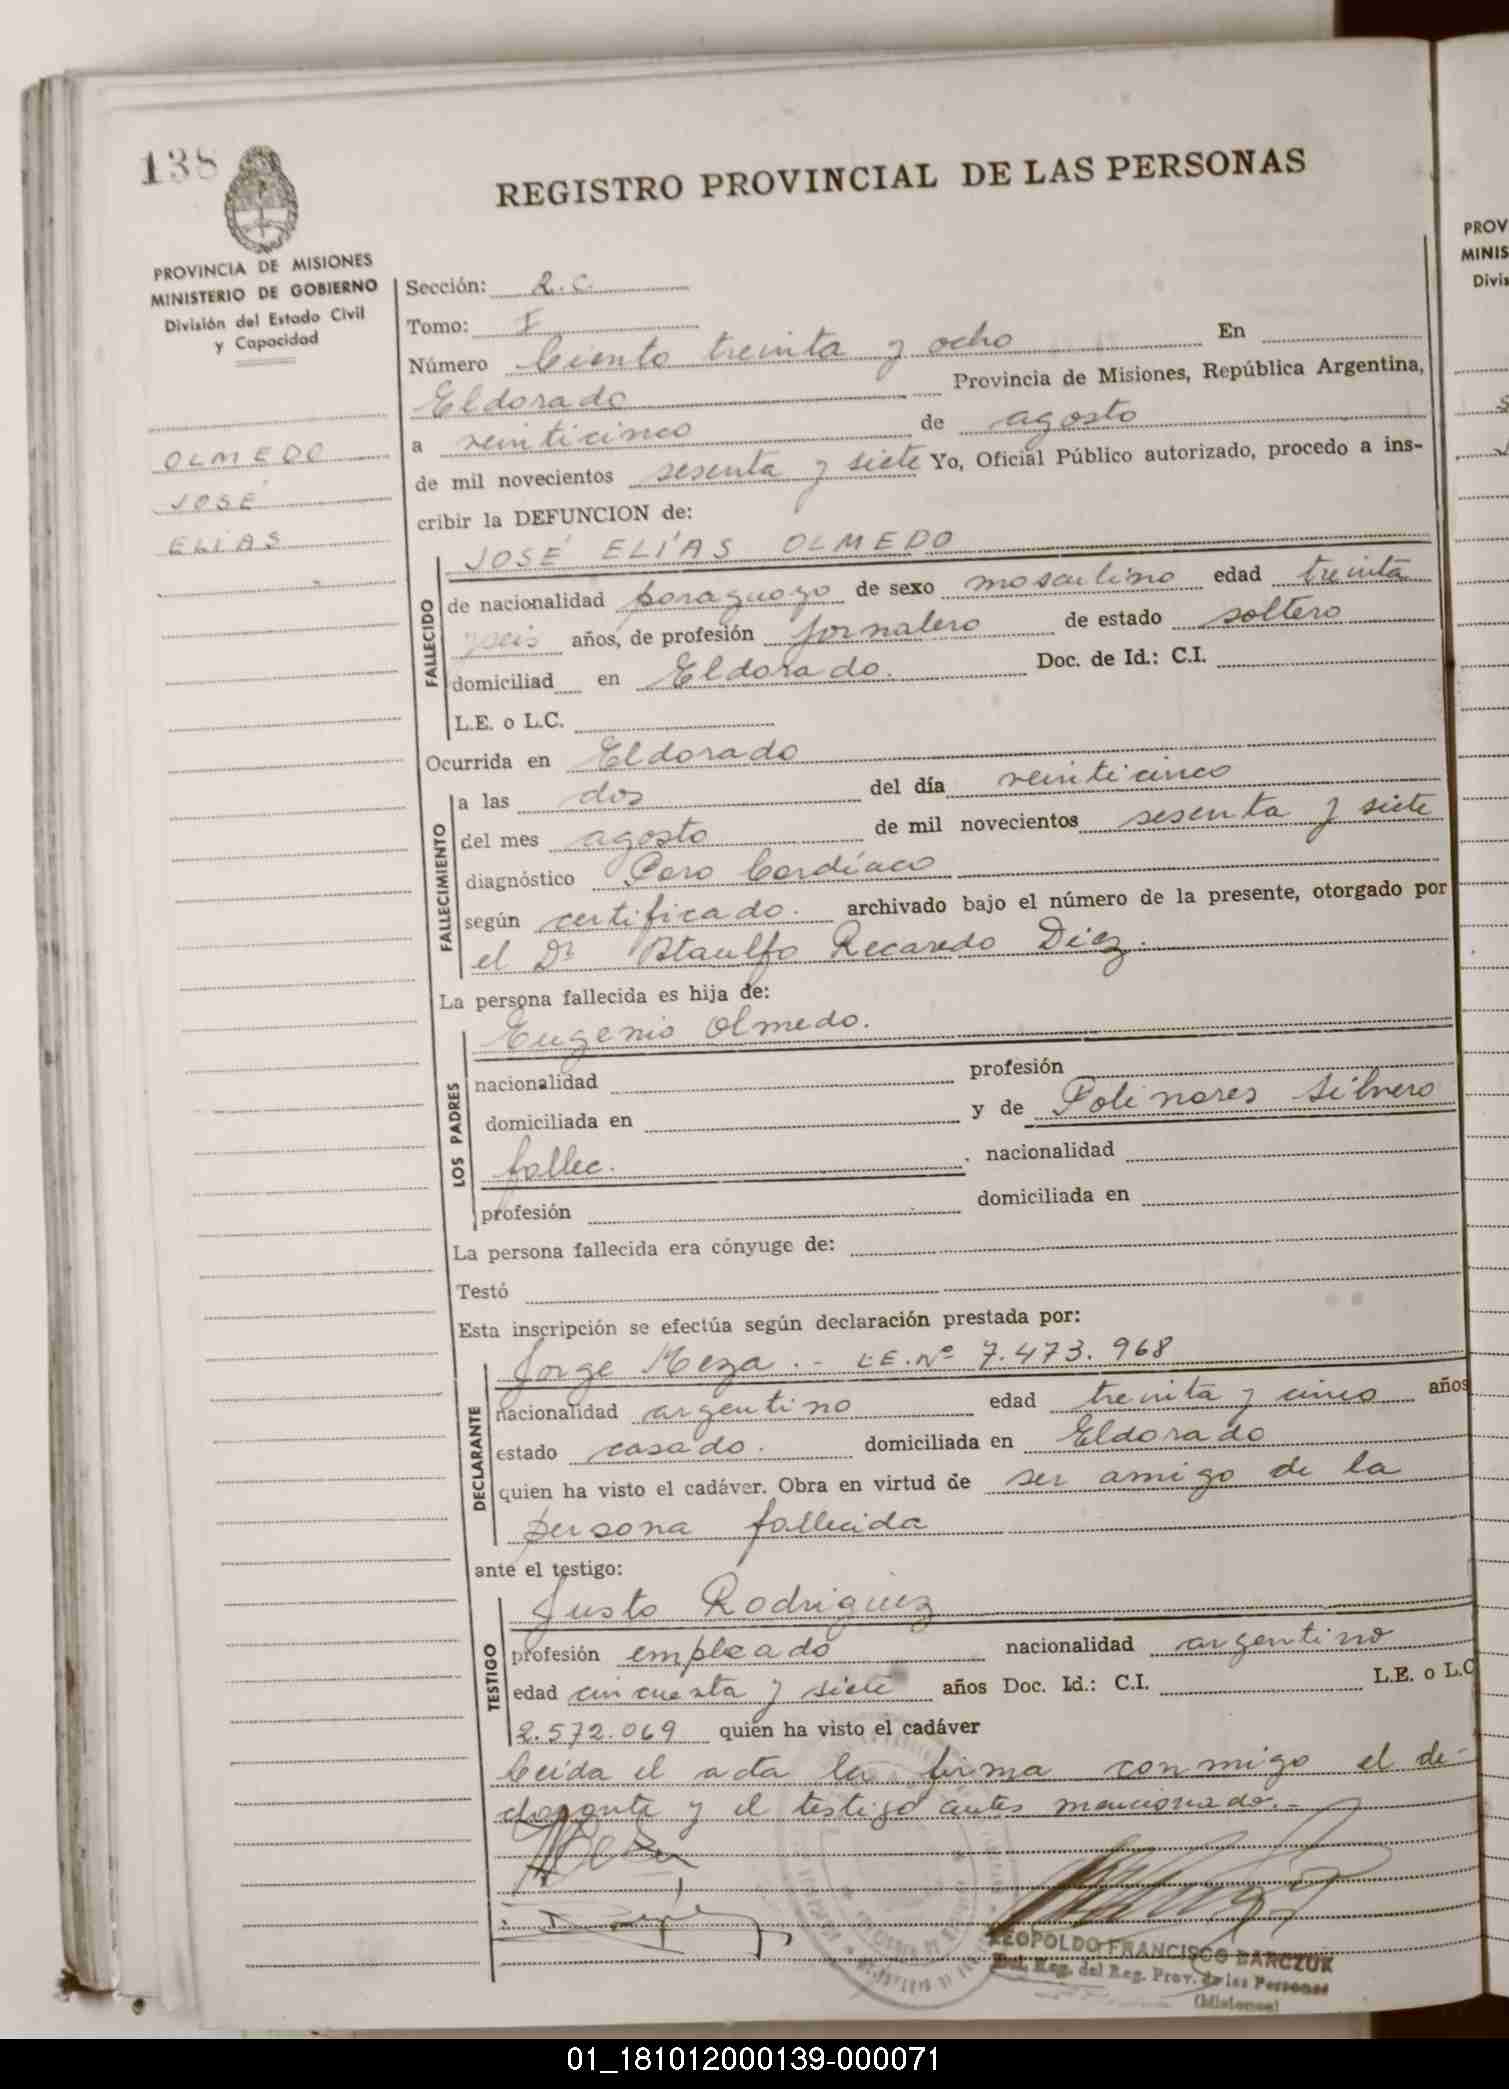 138
REGISTRO PROVINCIAL DE LAS PERSONAS
PROVINCIA DE MISIONES
MINISTERIO DE GOBIERNO
División del Estado Civil
y Capacidad
OLMEDO
JOSÉ
ELIAS
Sección: R.C.
Tomo: I
Número Ciento treinta y ocho En
Eldorado Provincia de Misiones, República Argentina,
a veinticinco de agosto
de mil novecientos sesenta y siete Yo, Oficial Público autorizado, procedo a ins-
cribir la DEFUNCION de:
FALLECIDO
JOSÉ ELÍAS OLMEDO
de nacionalidad paraguayo de sexo masculino edad treinta
y seis años, de profesión jornalero de estado soltero
domiciliad en Eldorado. Doc. de Id.: C.I.
L.E. o L.C.
Ocurrida en Eldorado
FALLECIMIENTO
a las dos del día veinticinco
del mes agosto de mil novecientos sesenta y siete
diagnóstico Paro Cardíaco
según certificado. archivado bajo el número de la presente, otorgado por
el Dr Ataulfo Recaredo Diez.
La persona fallecida es hija de:
LOS PADRES
Eugenio Olmedo.
nacionalidad profesión
domiciliada en y de Polinares Silvero
fallec. nacionalidad
profesión domiciliada en
La persona fallecida era cónyuge de:
Testó
Esta inscripción se efectúa según declaración prestada por:
DECLARANTE
Jorge Meza.- L.E. Nº 7.473.968
nacionalidad argentino edad treinta y cinco años
estado casado. domiciliada en Eldorado
quien ha visto el cadáver. Obra en virtud de ser amigo de la
persona fallecida
ante el testigo:
TESTIGO
Justo Rodriguez
profesión empleado nacionalidad argentino
edad cincuenta y siete años Doc. Id.: C.I. L.E. o L.C
2.572.069 quien ha visto el cadáver
Leída el acta la firma conmigo el de-
clarante y el testigo antes mencionado.-
LEOPOLDO FRANCISCO BARCZUK
Del. Reg. del Reg. Prov. de las Personas
(Misiones)
PROV
MINIS
Divis
01_181012000139-000071